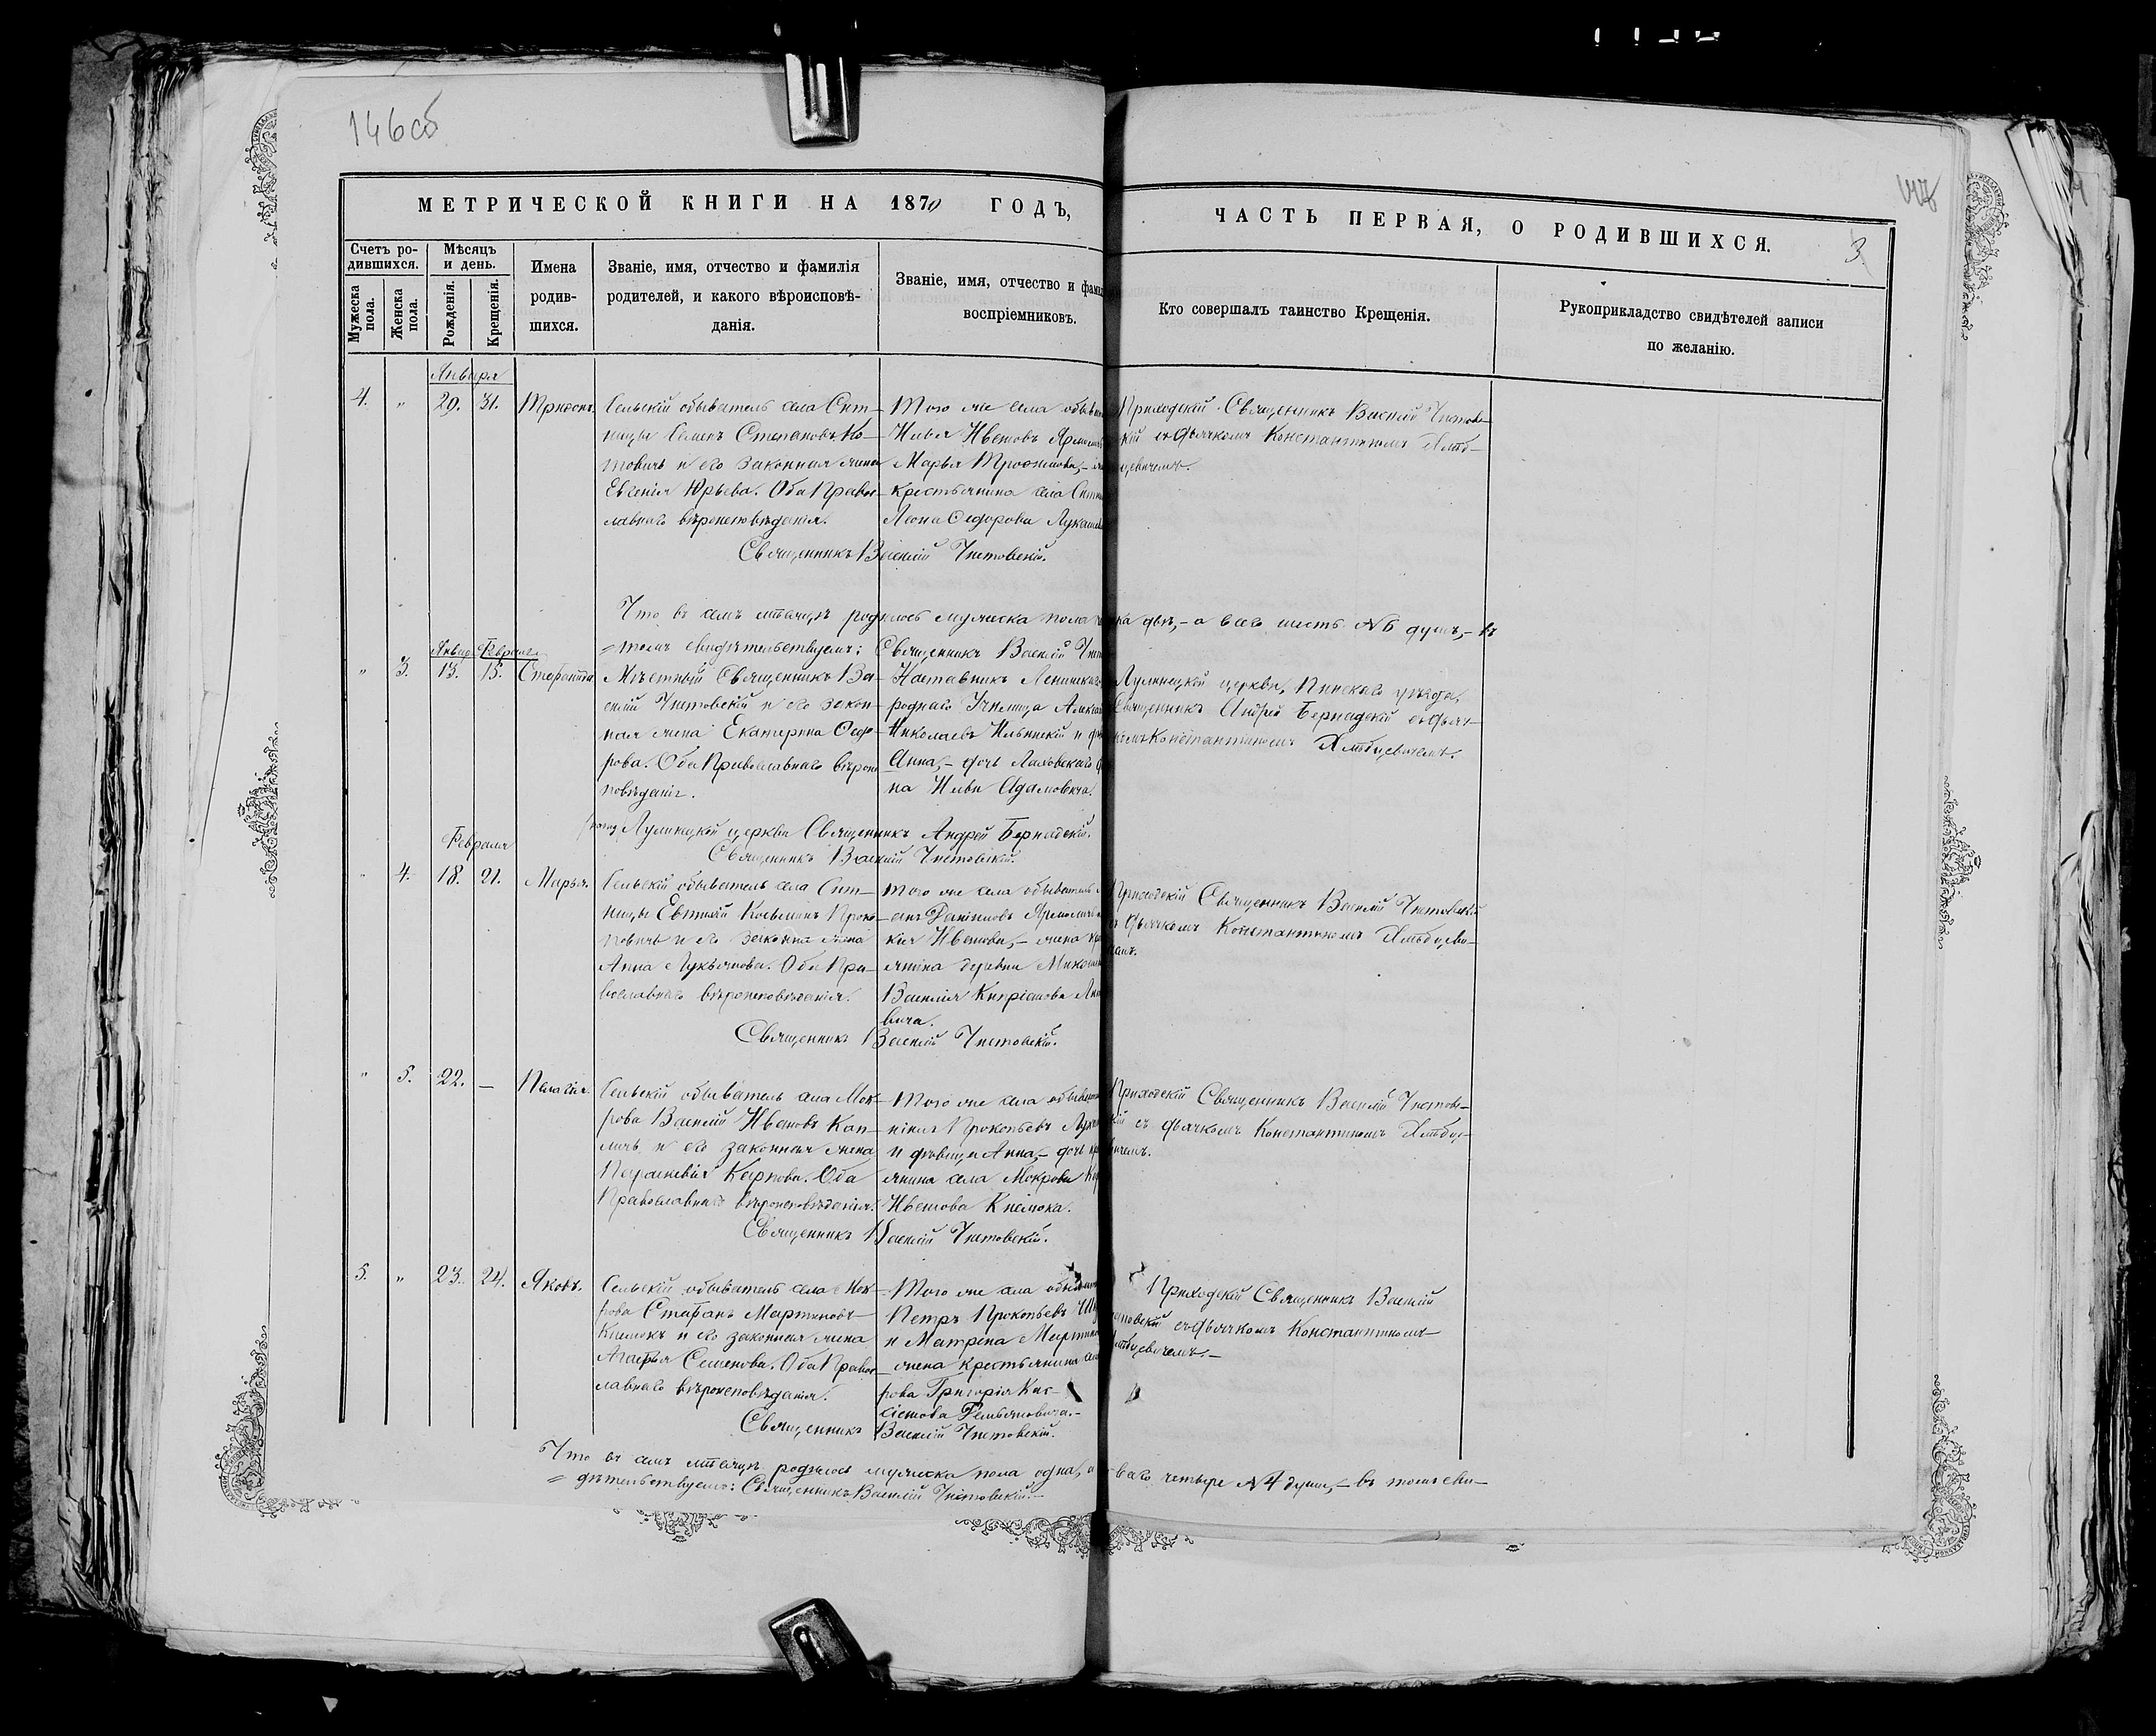 146об
147
МЕТРИЧЕСКОЙ КНИГИ НА 1870 ГОДЪ,
ЧАСТЬ ПЕРВАЯ, О РОДИВШИХСЯ.
3
Счетъ ро-
дившихся.
Мужеска
пола.
Женска
пола.
Мѣсяцъ
и день.
Рожденія.
Крещенія.
Имена
родив-
шихся.
Званіе, имя, отчество и фамилія
родителей, и какого вѣроисповѣ-
данія.
Званіе, имя, отчество и фами
воспріемниковъ.
Кто совершалъ таинство Крещенія.
Рукоприкладство свидѣтелей записи
по желанію.
Января
4. „ 29. 31. Трифонъ.
Сельскій обыватель села Сит-
ницы Семенъ Степановъ Ко-
товичъ и его законная жена
Евгенія Юрьева. Оба Правос-
лавнаго вѣроисповѣданія.
Того же села обыва
Илья Ивановъ
Марья Трофимова,-
крестьянина села Ситн
Леона Федорова
Приходскій Священникъ Василій Чистовс-
кій съ дьячкомъ Константиномъ
цевичемъ.
Священникъ Василій Чистовскій.
Что въ семъ мѣсяцѣ родилось мужеска пола
ка двѣ,- а всего шесть №6 душъ,- въ
томъ свидѣтельствуемъ: Священникъ Василій Чист
Январ. Февраля
„ 3. 13. 15. Стефанида
Мѣстный Священникъ Ва-
силій Чистовскій и его закон-
ная жена Екатерина Федо-
рова. Оба Православнаго вѣроис
повѣданія.
Наставникъ Ленинскаго
роднаго Училища
Николаевъ Ильинскій и
Анна,- дочь
на Ильи Адамовича.
Лунинецкой церкви, Пинскаго уѣзда,
Священникъ Андрей Бернадскій съ дьяч-
комъ Константиномъ
Лунинецкой церкви Священникъ Андрей Бернадскій.
Священникъ Василій Чистовскій.
Февраля
„ 4. 18. 21. Марья.
Сельскій обыватель села Сит-
ницы Евтихій Козьминъ Проко-
повичъ и его законна жена
Анна Лукьянова. Оба Пра-
вославнаго вѣроисповѣданія.
Того же села обыватель
Ивановна,- жена кре
янина деревни
Василія Кипріанова
вича.
Приходскій Священникъ Василій Чистовскій
съ дьячкомъ Константиномъ
Священникъ Василій Чистовскій.
„ 5. 22. — Пелагія.
Сельскій обыватель села Мок-
рова Василій Ивановъ Кап-
личъ и его законная жена
Параскевія Карпова. Оба
Православнаго вѣроисповѣданія.
Того же села обыват
Прокопьевъ
и дѣвица Анна,- дочь кре
янина села Мокрова
Иванова Климока.
Приходскій Священникъ Василій Чистовс-
кій съ дьячкомъ Константиномъ
Священникъ Василій Чистовскій.
5. „ 23. 24. Яковъ.
Сельскій обыватель села Мок-
рова Стефанъ Мартиновъ
Климокъ и его законная жена
Агафья Семенова. Оба Правос-
лавнаго вѣроисповѣданія.
Того же села обыват
Петръ Прокопьевъ
и Матрена Мартино
жена крестьянина села
рова Григорія
Приходскій Священникъ Василій
стовскій съ дьячкомъ Константиномъ
Священникъ Василій Чистовскій.
Что въ семъ мѣсяцѣ родилось мужеска пола одна, а всего четыре №4 души,- въ томъ сви-
дѣтельствуемъ: Священникъ Василій Чистовскій.-